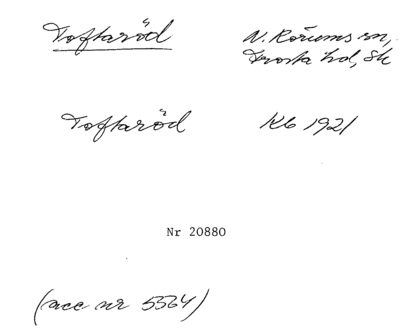 Toftaröd
N. Rörums sn,
Frosta hd, Sk
Toftaröd Kb 1921
Nr 20880
(acc nr 5564)